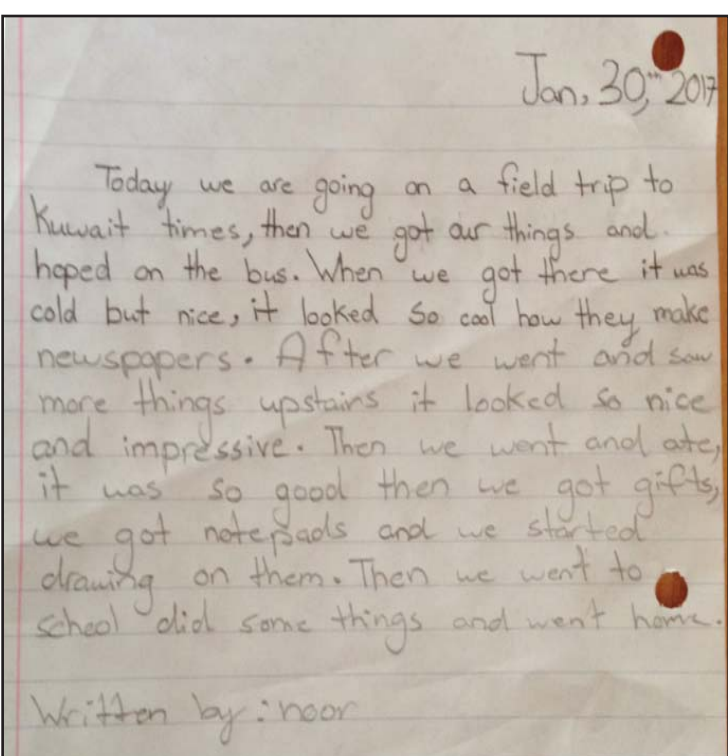 Jan, 30,th 2017
Today we are going on a field trip to
Kuwait times, then we got our things and
hoped on the bus. When we got there it was
cold but nice, it looked so cool how they make
newspapers. After we went and saw
more things upstairs it looked so nice
and impressive. Then we went and ate,
it was so good then we got gifts,
we got notepads and we started
drawing on them. Then we went to
school did some things and went home.
Written by: noor